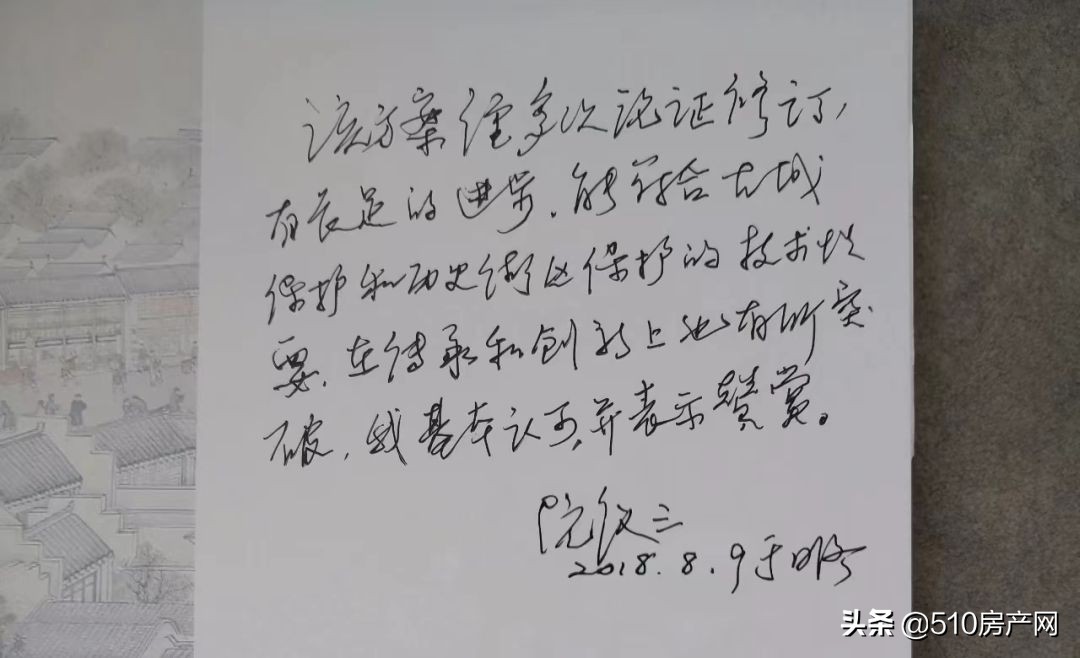 该方案经多次论证修订，
有长足的进步。能符合古城
保护和历史街区保护的技术性
要，在传承和创新上也有所突
破，我基本认可，并表示赞赏。
阮仪三
2018.8.9于
头条 @510房产网